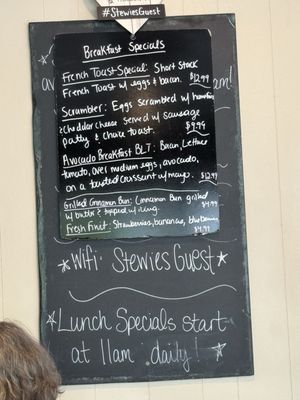 #StewiesGuest
Breakfast Specials
French Toast Special: Short Stack
French Toast w/ eggs & bacon. $12.99
Scrambler: Eggs scrambled w/ ham
& cheddar cheese served w/ sausage
patty & choice toast. $9.99
Avocado Breakfast BLT: Bacon, Lettuce
tomato, over medium eggs, avocado,
on a toasted croissant w/ mayo. $12.99
Grilled Cinnamon Bun: Cinnamon Bun grilled
w/ butter & topped w/ icing. $4.99
Fresh Fruit: Strawberries, bananas, blueberries
$4.99
Wifi: Stewies Guest
Lunch Specials start
at 11am daily!